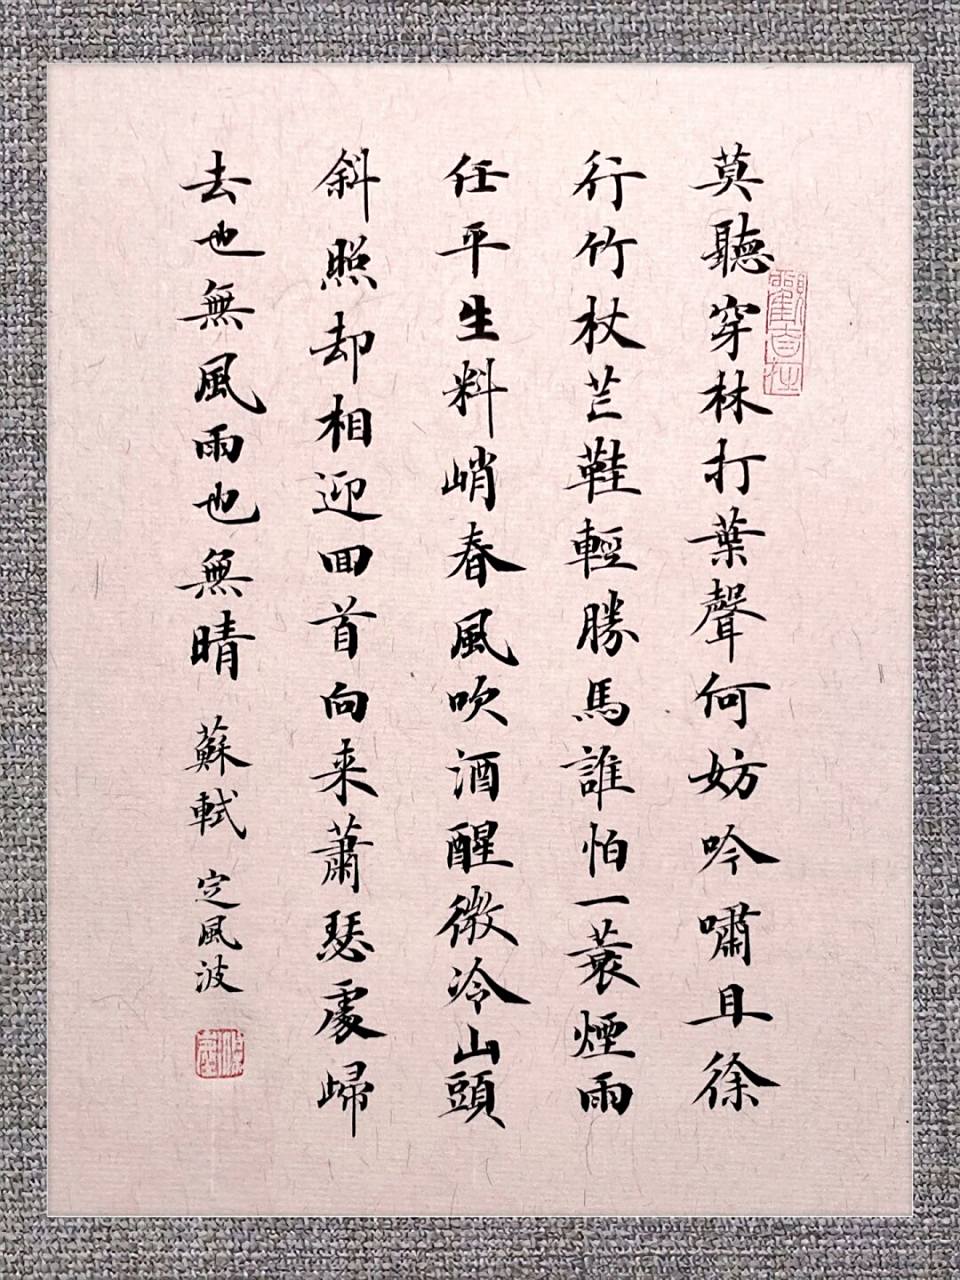 莫聽穿林打葉聲何妨吟嘯且徐
行竹杖芒鞋輕勝馬誰怕一蓑煙雨
任平生料峭春風吹酒醒微冷山頭
斜照却相迎回首向来蕭瑟處歸
去也無風雨也無晴 蘇軾 定風波